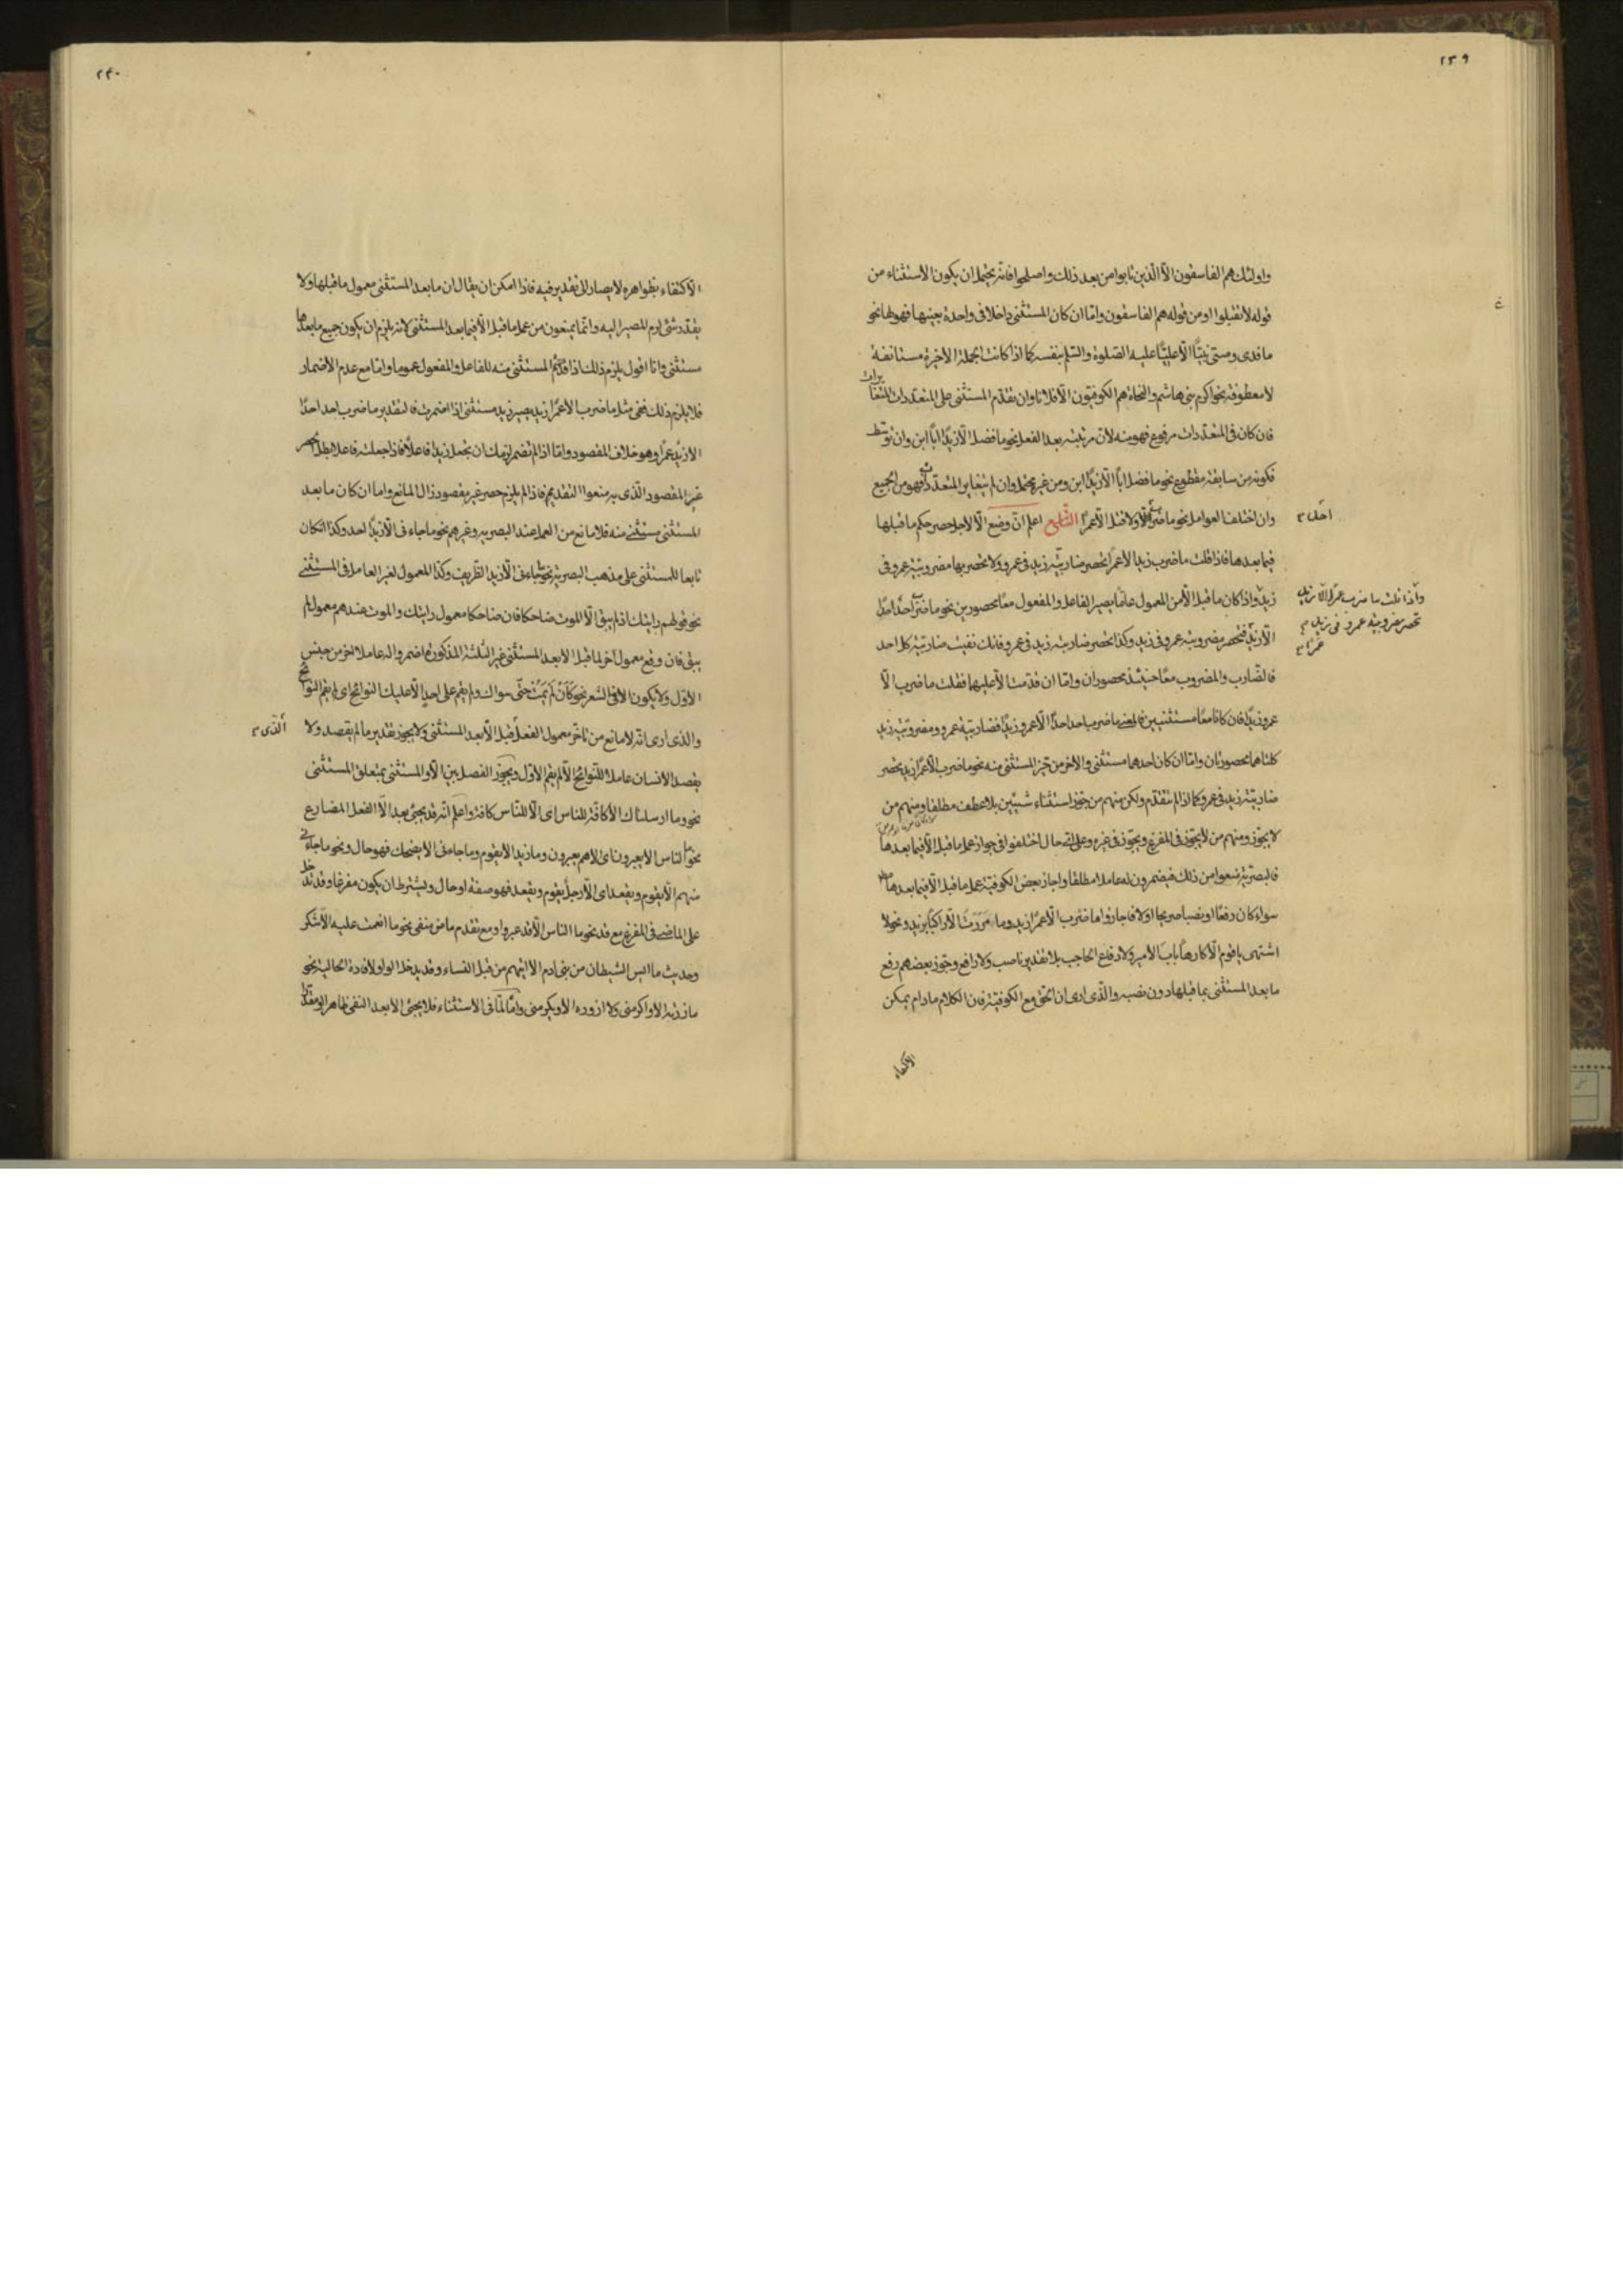 ٢٣٩
واولئك هم الفاسقون الّا الّذين تابوا من بعد ذلك واصلحوا فانه يحتمل ان يكون الاستثناء من
قوله لا تقبلوا او من قوله هم الفاسقون وامّا ان كان المستثنى داخلا فى واحدة بعينها فهو لها نحو
ما فدى وصىّ نبيًّا الّا عليًّا عليه الصّلوة والسّلم بنفسه كما اذا كانت الجملة الاخيرة مستانفة
لا معطوفة نحو اكرم بنى هاشم والنحاة هم الكوفيّون الّا فلانا وان تقدّم المستثنى على المتعدّدات المتغايرات
فان كان فى المتعدّدات مرفوع فهو منه لان مرتبته بعد الفعل نحو ما فضل الّا زيدًا ابًا ابن وان توسّط
فكونه من سابقه مقطوع نحو ما فضل ابًا الّا زيدًا ابن ومن غيره محتمل وان لم يتغاير المتعدّدات فهو من الجميع
وان اختلف العوامل نحو ما ضرب احد ولا قتل الّا عمرًا اعلم انّ وضع الّا لاجل حصر حكم ما قبلها
احد
فيما بعدها فاذا قلت ما ضرب زيد الّا عمرًا انحصر ضاربيّة زيد فى عمرو ولا تحصر بها مضروبيّة عمرو فى
زيد واذا كان ما قبل الّا من المعمول عامًّا يصير الفاعل والمفعول معًا محصورين نحو ما ضرب احد احدًا
واذا قلت ما ضرب عمرًا الّا زيد
تحصر مضروبيّة عمرو فى زيد
عمرًا
الّا زيد فتحصر مضروبيّة عمرو فى زيد وكذا تحصر ضاربيّة زيد فى عمرو فانك نفيت ضاربيّة كل احد
فالضّارب والمضروب معًا حينئذ محصوران وامّا ان قدّمت الّا عليهما فقلت ما ضرب الّا
عمرو زيدًا فان كانا معًا مستثنيين فالمعنى ما ضرب احد احدًا الّا عمرو زيدًا فضاربيّة عمرو ومضروبيّة زيد
كلتاهما محصورتان وامّا ان كان احدهما مستثنى والاخر من حيّز المستثنى منه نحو ما ضرب الّا عمرًا زيد يحصر
ضاربيّة زيد فى عمرو كما اذا لم تتقدّم ولكن منهم من جوّز استثناء شيئين بلا عطف مطلقا ومنهم من
لا يجوّز ومنهم من لا يجوّز فى المفرغ ويجوّز فى غيره وعلى اىّ حال اختلفوا فى جواز عمل ما قبل الّا فيما بعدها
فالبصريّة منعوا من ذلك فيضمرون له عاملا مطلقا واجاز بعض الكوفيّة عمل ما قبل الّا فيما بعدها
سواء كان رفعًا او نصبا صريحا اولا فاجازوا ما ضرب الّا عمرًا زيد وما مررت الّا راكبًا بزيد ونحو لا
اشتهى يا قوم الّا كارهًا باب الامير ولا دفاع الحاجب بلا تقدير ناصب ولا رافع وجوّز بعضهم رفع
ما بعد المستثنى بما قبلها دون نصبه والّذى ارى ان الحق مع الكوفيّة فان الكلام ما دام يمكن
الاكتفاء
٢٤٠
الاكتفاء بظواهره لا يصار الى تقدير فيه فاذا امكن ان يقال ان ما بعد المستثنى معمول ما قبلها ولا
يقدّر شئ لزم المصير اليه وانّما يمنعون من عمل ما قبل الّا فيما بعد المستثنى لانه يلزم ان يكون جميع ما بعدها
مستثنى وانا اقول يلزم ذلك اذا قدّم المستثنى منه للفاعل والمفعول عموما وامّا مع عدم الاضمار
فلا يلزم ذلك ففى مثل ما ضرب الّا عمرًا زيد يصير زيد مستثنى اذا اضمرت فالتقدير ما ضرب احد احدًا
الّا زيد عمرًا وهو خلاف المقصود وامّا اذا لم تضمر لزمك ان تجعل زيدًا فاعلًا فاذا جعلته فاعلا بطل الحصر
غير المقصود الّذى به منعوا التقديم فاذا لم يلزم حصر غير مقصود زال المانع واما ان كان ما بعد
المستثنى مستثنى منه فلا مانع من العمل عند البصريه وغيرهم نحو ما جاءنى الّا زيدًا احد وكذا ان كان
تابعا للمستثنى على مذهب البصريّة نحو ما جاءنى الّا زيد الظّريف وكذا المعمول لغير العامل فى المستثنى
نحو قولهم رايتك اذ لم يبق الّا الموت ضاحكا فان ضاحكا معمول رايتك والموت عندهم معمول لم
يبق فان وقع معمول اخر لما قبل الّا بعد المستثنى غير الثّلثة المذكورة اضمروا له عاملا اخر من جنس
الاوّل ولا يكون الّا فى الشعر نحو كأن لم يمت حىّ سواك ولم يقم على احدٍ الّا عليك النوائح اى لم يقم النوائح
والذى ارى انّه لا مانع من تاخّر معمول الفعل قبل الّا بعد المستثنى ولا يجوز تقدير ما لم يقصد ولا
الّذى
يقصد الانسان عاملا للنّوائح الّا لم يقم الاوّل ويجوز الفصل بين الّا والمستثنى بمتعلق المستثنى
نحو وما ارسلناك الّا كافّة للناس اى الّا للنّاس كافة واعلم انّه قد يجئ بعد الّا الفعل المضارع
نحو ما الناس الّا يعبرون اى الّا هم يعبرون وما زيد الّا يقوم وما جاءنى الّا يضحك فهو حال ونحو ما جاءنى
منهم الّا يقوم ويقعد اى الّا رجل يقوم ويقعد فهو صفة او حال ويشترط ان يكون مفرغا وقد تدخل
على الماضى فى المفرغ مع قد نحو ما الناس الّا قد عبروا ومع تقدم ماض منفى نحو ما انعمت عليه الّا شكر
وحديث ما ايس الشيطان من بنى ادم الّا اتيهم من قبل النساء وقد يدخل الواو لافادة الحالية نحو
ما زرته الّا واكرمنى ولا ازوره الّا ويكرمنى وامّا لمّا فى الاستثناء فلا يجئ الّا بعد النفى ظاهرا او مقدّرا